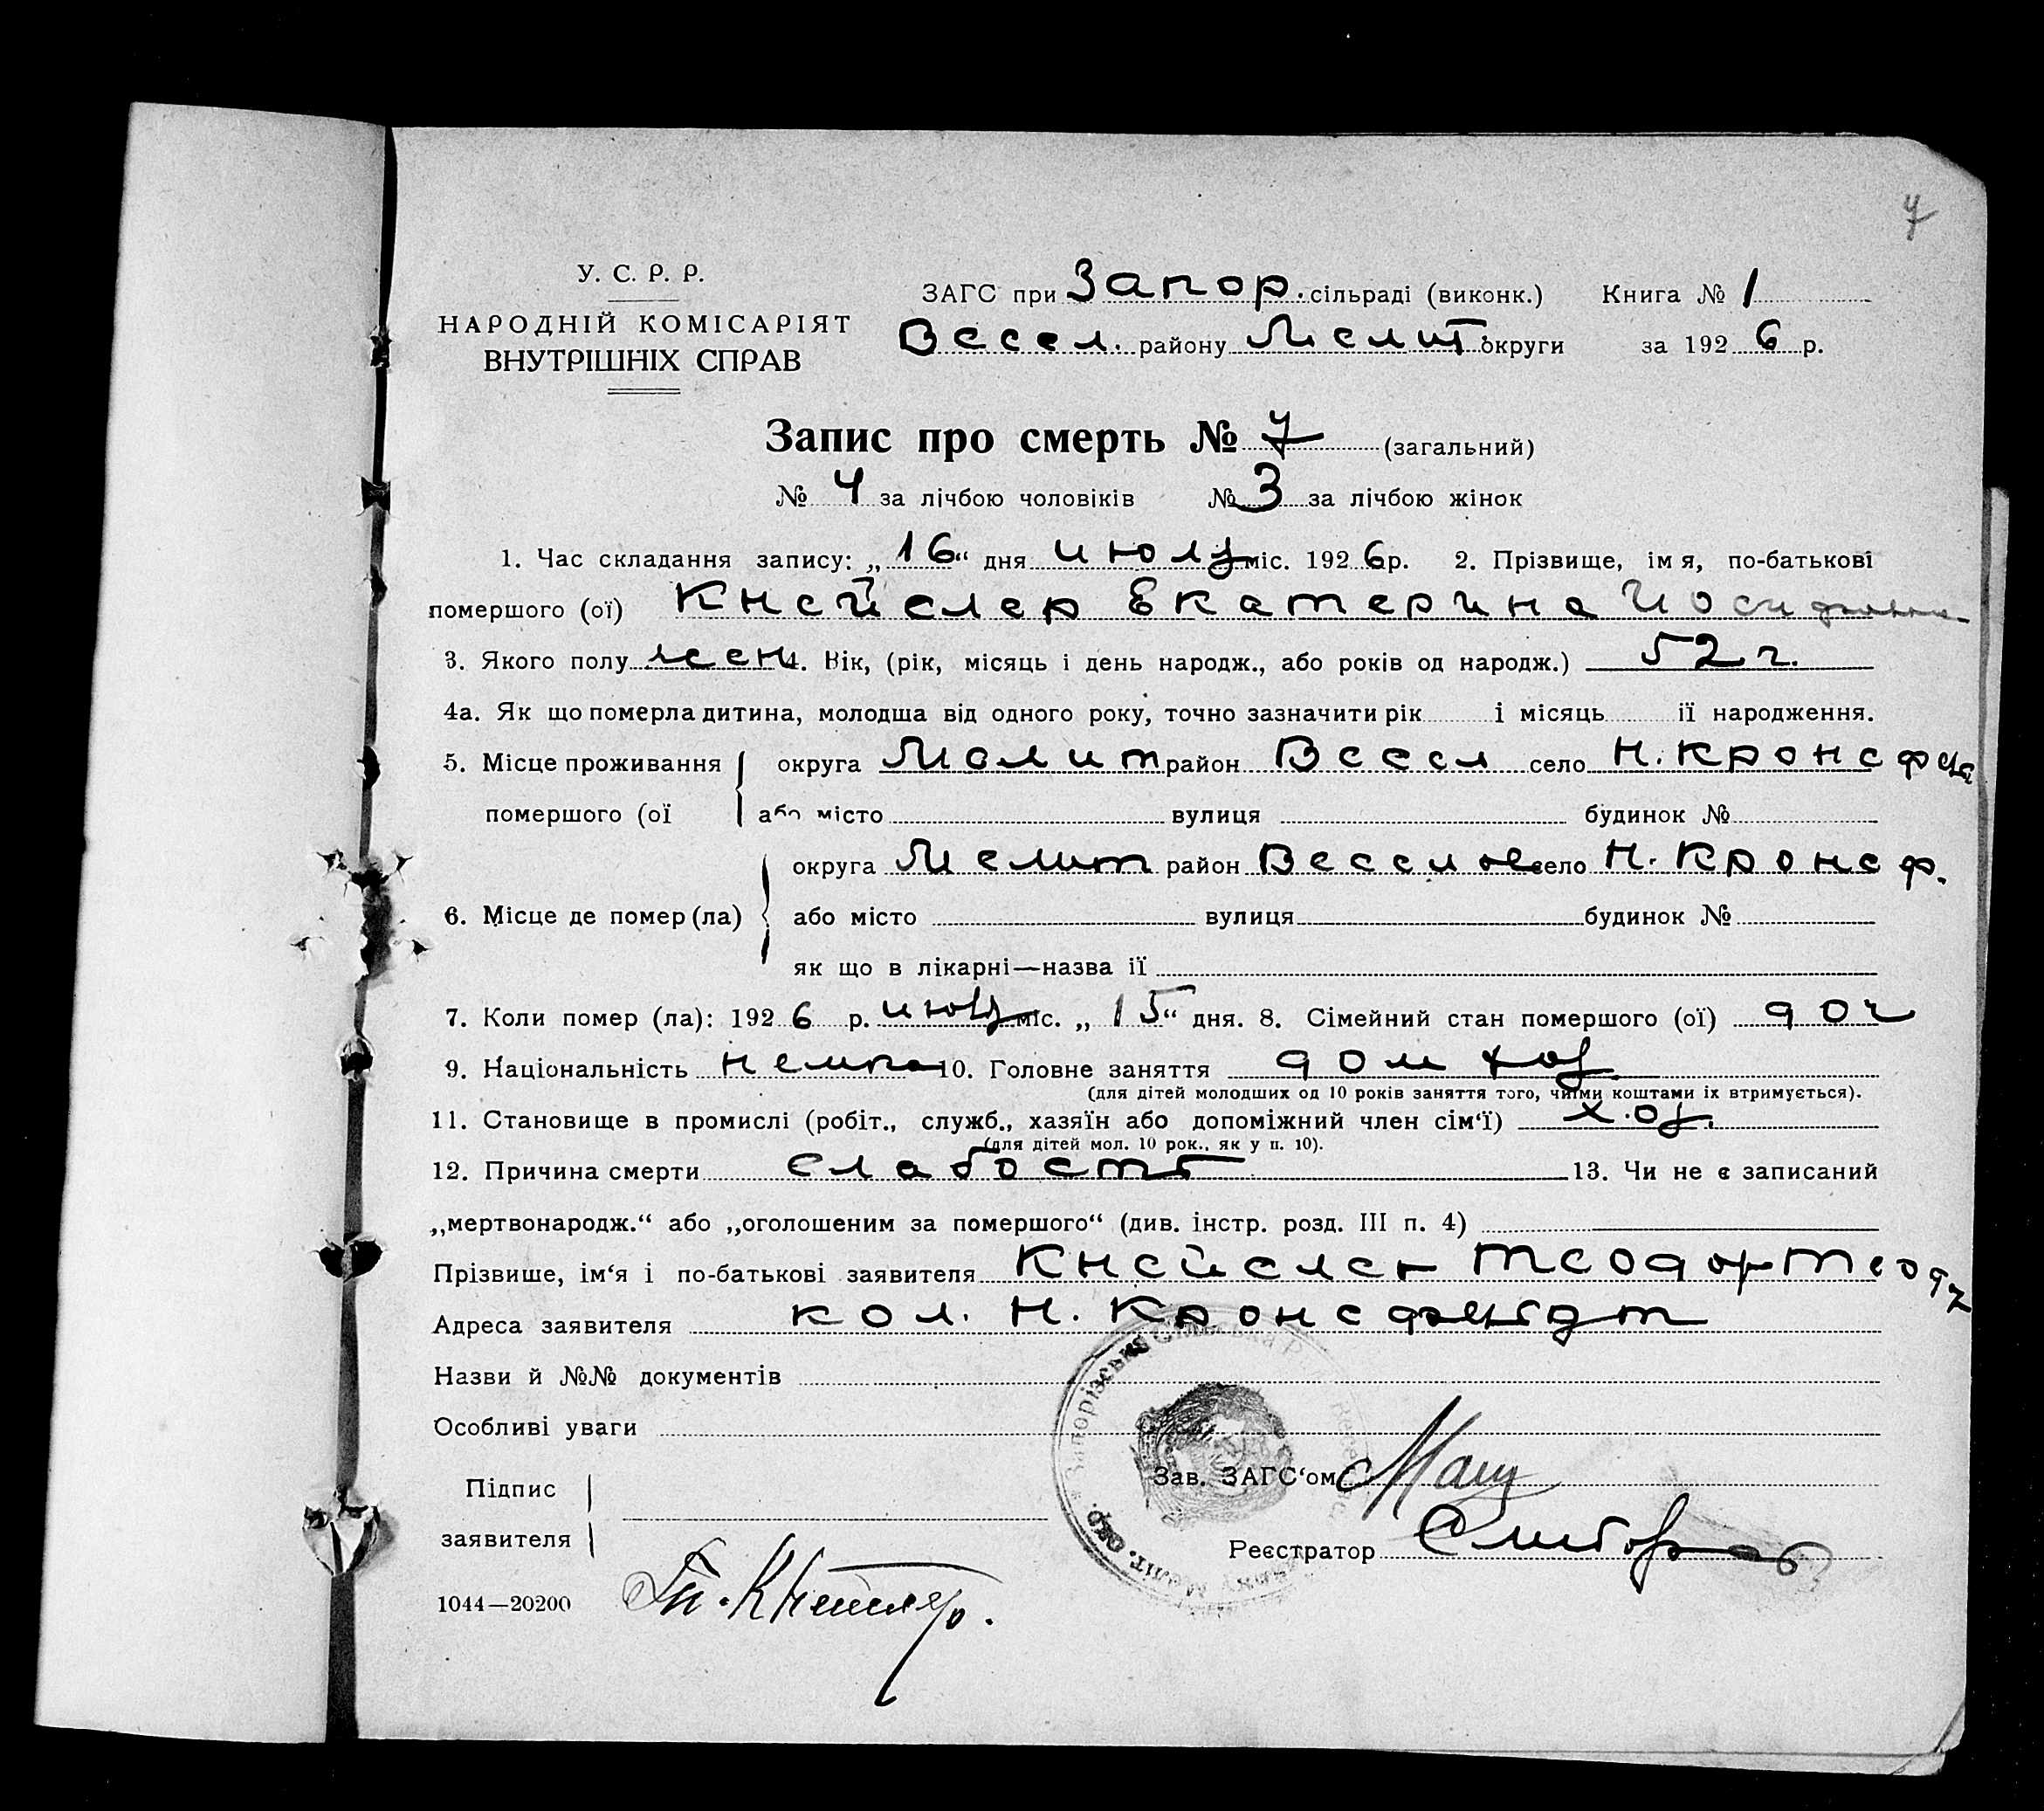 7
У. С. Р. Р.
НАРОДНІЙ КОМІСАРІЯТ
ВНУТРІШНІХ СПРАВ
ЗАГС при Запор. сільраді (виконк.) Книга № 1
Весел. району Мелит. округи за 1926 р.
Запис про смерть № 7 (загальний)
№ 4 за лічбою чоловіків № 3 за лічбою жінок
1. Час складання запису: „16“ дня июля міс. 1926 р. 2. Прізвище, імя, по-батькові
помершого (ої) Кнейслер Екатерина Иосифовна
3. Якого полу жен 4. Вік, (рік, місяць і день народж., або років од народж.) 52 г.
4а. Як що померла дитина, молодша від одного року, точно зазначити рік і місяць її народження.
5. Місце проживання округа Мелит район Весел село Н. Кронсф
помершого (ої або місто вулиця будинок №
округа Мелит район Веселое село Н. Кронсф.
6. Місце де помер (ла) або місто вулиця будинок №
як що в лікарні—назва її
7. Коли помер (ла): 1926 р. июля міс. „15“ дня. 8. Сімейний стан помершого (ої)
9. Національність немка 10. Головне заняття дом хоз
(для дітей молодших од 10 років заняття того, чиїми коштами їх втримується).
11. Становище в промислі (робіт., служб., хазяїн або допоміжний член сім‘ї) хоз.
(для дітей мол. 10 рок., як у п. 10).
12. Причина смерти слабость 13. Чи не є записаний
„мертвонародж.“ або „оголошеним за помершого“ (див. інстр. розд. III п. 4)
Прізвище, ім‘я і по-батькові заявителя Кнейслер Теодор Теодр
Адреса заявителя кол. Н. Кронсфельдт
Назви й №№ документів
Особливі уваги
Запорізська Сільська Р Меліт. Окр.
Підпис Зав. ЗАГС‘ом
заявителя Реєстратор
1044—20200 Кнейслер.